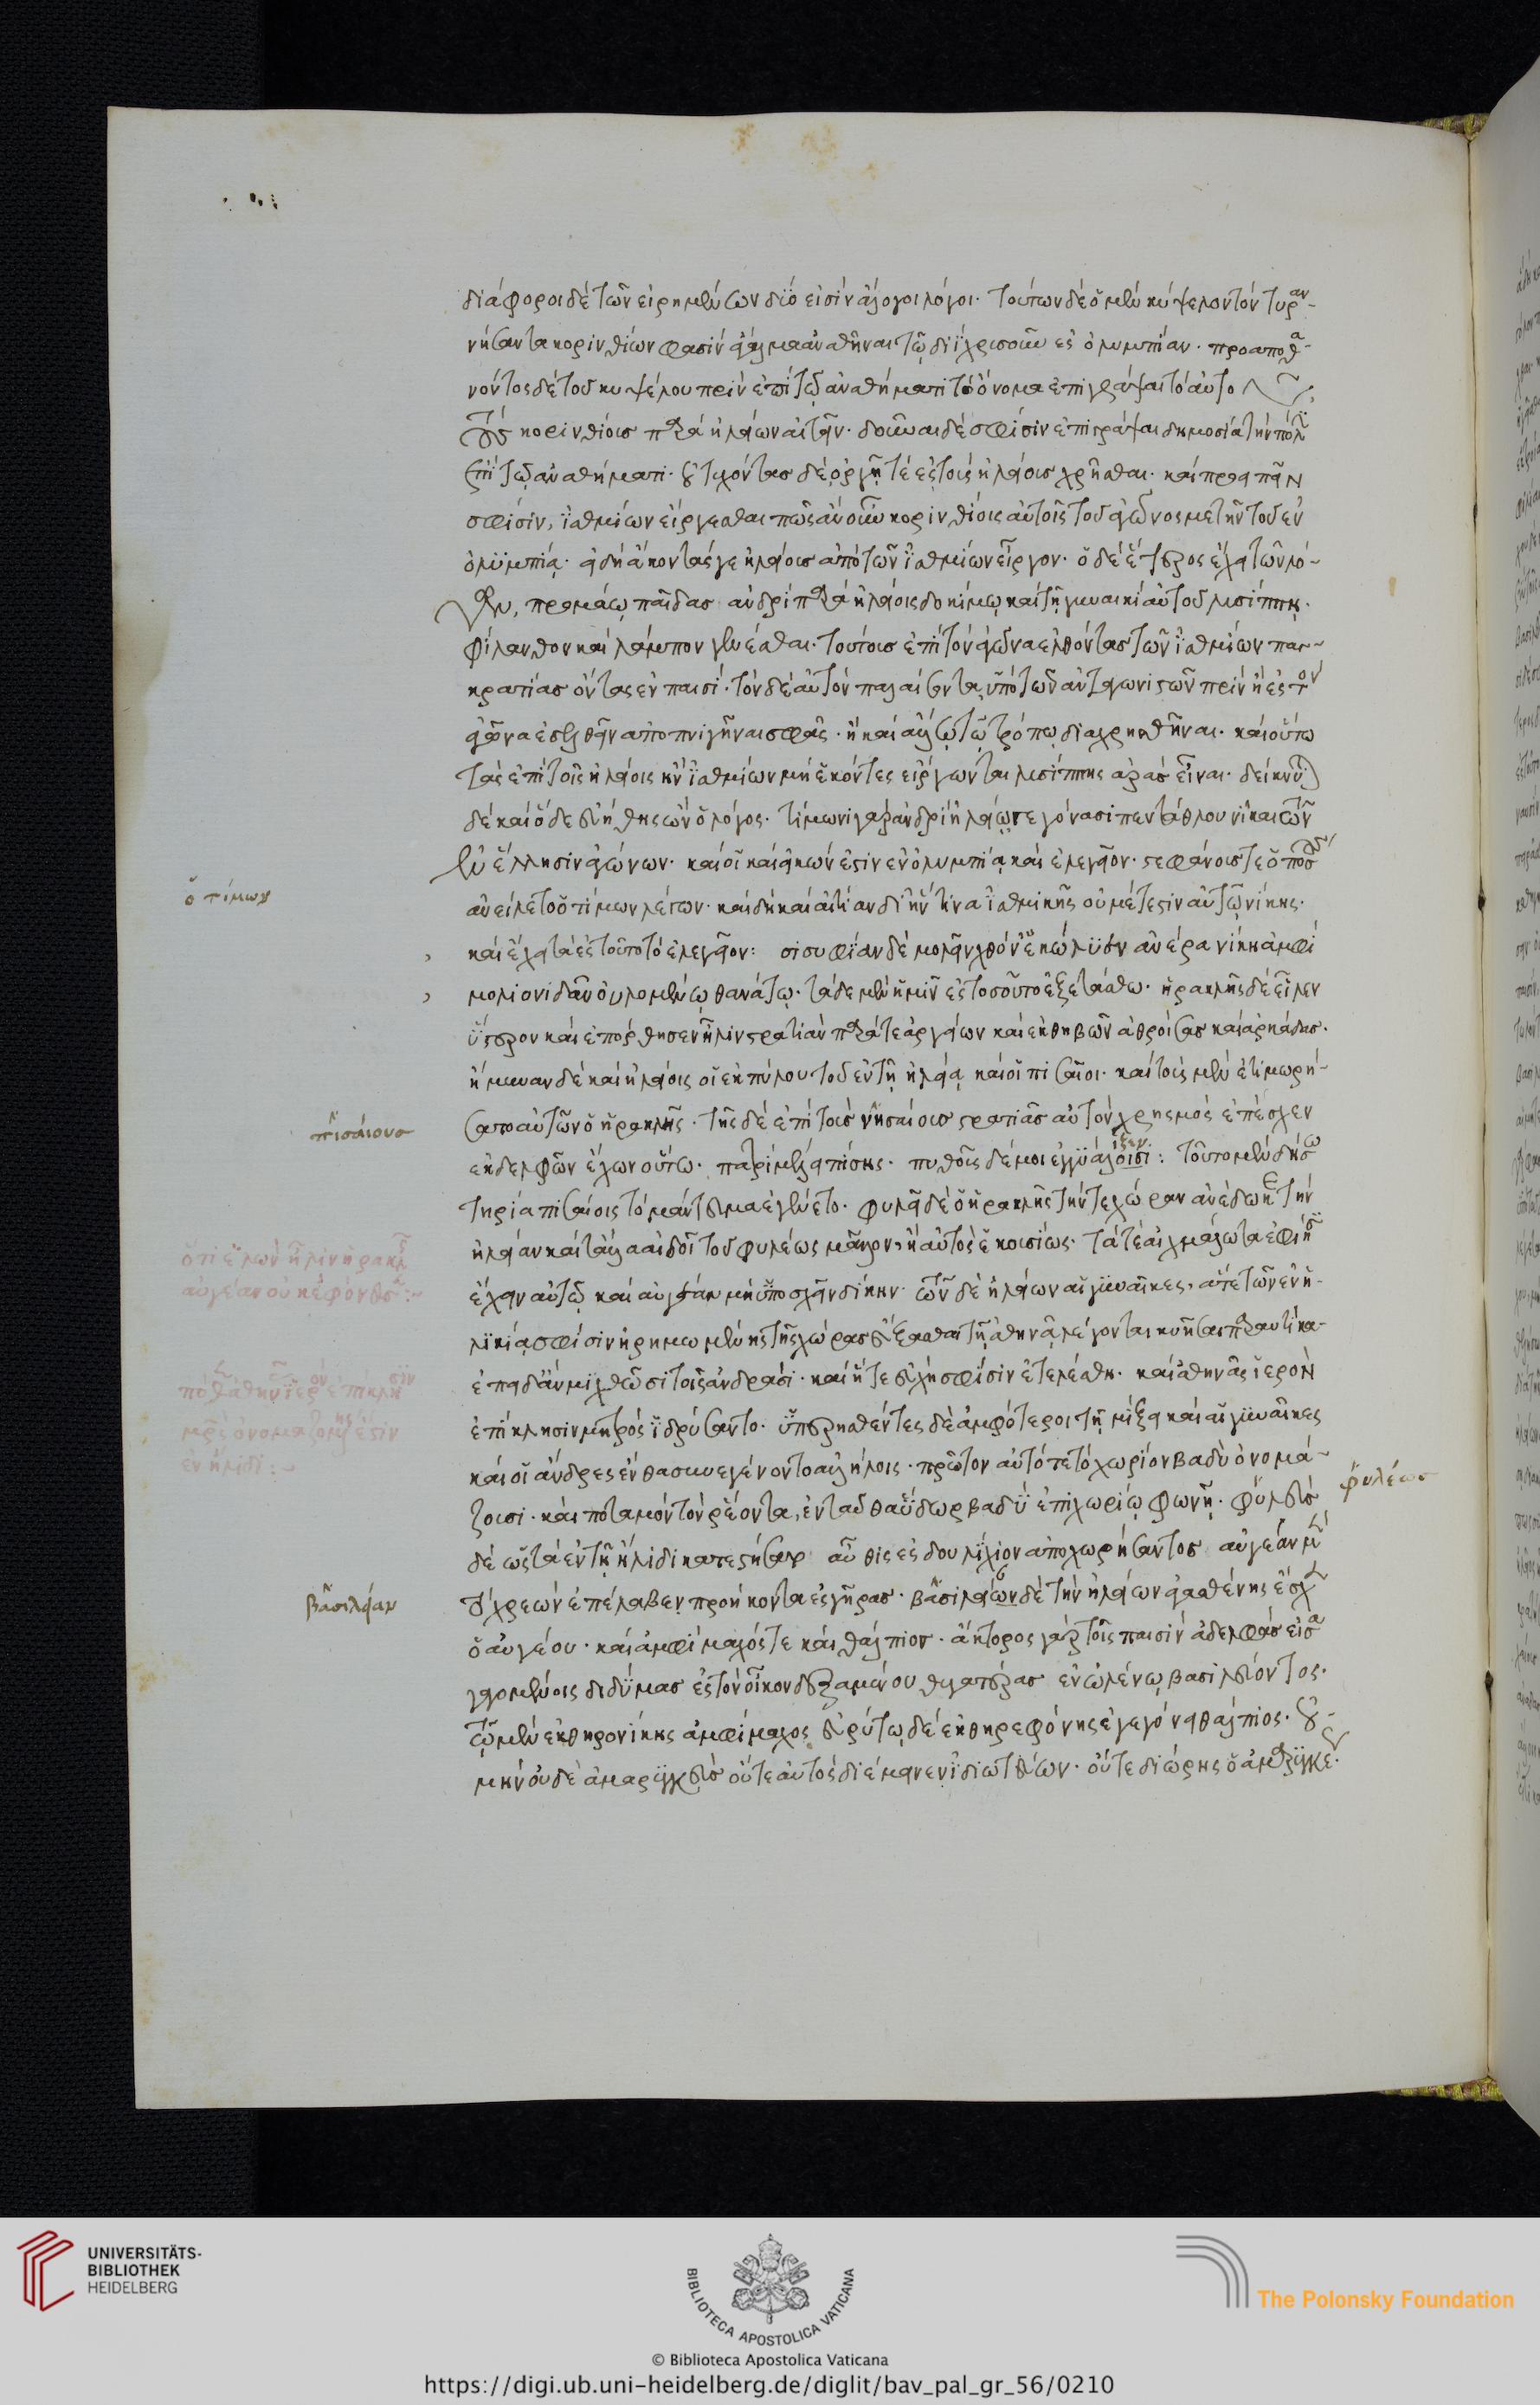 διάφοροι δὲ τῶν εἰρημένων δύο εἰσὶν ἄλογοι λόγοι. τούτων δὲ ὁ μὲν κύψελον τὸν τυραν-
νήσαντα κορινθίων φασὶν ἄγαλμα ἀναθῆναι τῷ διῒ χρυσοῦν ἐς ὀλυμπίαν. προαποθα-
νόντος δὲ τοῦ κυψέλου πρὶν ἐπὶ τῷ ἀναθήματι τὸ ὄνομα ἐπιγράψαι τὸ αὐτο
τοὺς κορινθίους παρὰ ἠλείων αἰτεῖν. δοῦναι δέ σφίσιν ἐπιγράψαι δημοσία τὴν πόλϊν
ἐπὶ τῷ ἀναθήματι. οὐ τυχόντας δὲ ὀργῇ τὲ ἐς τοὺς ἠλείους χρῆσθαι. καὶ προειπεῖν
σφίσιν, ἰσθμίων εἴργεσθαι πῶς ἂν οὖν κορινθίοις αὐτοῖς τοῦ ἀγῶνος μετῆν τοῦ ἐν
ὀλυμπίᾳ. εἰ δὴ ἄκοντάς γε ἠλείους ἀπὸ τῶν ἰσθμίων εἶργον. ὁ δὲ ἕτερος ἔχει τῶν λό-
γων, προλάῳ παῖδας ἀνδρὶ παρὰ ἠλείοις δοκίμῳ καὶ τῇ γυναικὶ αὐτοῦ λυσίππῃ.
φίλανθον καὶ λάμπον γενέσθαι. τούτους ἐπὶ τὸν ἀγῶνα ἐλθόντας τῶν ἰσθμίων παγ-
κρατίας ὄντας ἐν παισί. τὸν δὲ αὐτὸν παλαίσοντα, ὑπὸ τῶν ἀνταγωνιστῶν πρὶν ἢ ἐς τὸν
ἀγῶνα ἐσελθεῖν ἀποπνιγῆναι σφᾶς. ἢ καὶ ἄλλῳ τῷ τρόπῳ διαχρησθῆναι. καὶ οὕτω
τὰς ἐπὶ τοῖς ἠλείοις ἢν ἰσθμίων μὴ ἑκόντες εἴργωνται λυσίππης ἀρὰς εἶναι. δείκνυσι
δὲ καὶ ὅδε εὐήθης ὢν ὁ λόγος. τίμωνι γὰρ ἀνδρὶ ἠλείῳ γεγόνασι πεντάθλου νῖκαι τῶν
ἐν ἕλλησιν ἀγώνων. καὶ οἱ καὶ εἰκών ἐστιν ἐν ὀλυμπίᾳ καὶ ἐλεγεῖον. στεφάνους τε ὁπόσους
ἀνείλετο ὁ τίμων λέγων. καὶ δὴ καὶ αἰτίαν δι᾽ ἥντινα ἰσθμικῆς οὐ μέτεστιν αὐτῷ νίκης.
καὶ ἔχει τὰ ἐς τοῦτο τὸ ἐλεγεῖον: σισυφίαν δὲ μολεῖν χθόν᾽ ἐκώλυεν ἀνέρα νίκη ἀμφὶ
μολιονιδᾶν ὀυλομένῳ θανάτῳ. τάδε μὲν ἡμῖν ἐς τοσοῦτο ἐξετάσθω. ἡρακλῆς δὲ εἷλεν
ὕστερον καὶ ἐπόρθησεν ἦλιν στρατιὰν παρά τε ἀργείων καὶ ἐκ θηβῶν ἀθροίσας καὶ ἀρκάδας.
ἤμυναν δὲ καὶ ἠλείοις οἱ ἐκ πύλου τοῦ ἐν τῇ ἠλείᾳ καὶ οἱ πισαῖοι. καὶ τοὺς μὲν ἐτιμωρή-
σατο αὐτῶν ὁ ἡρακλῆς. τῆς δὲ ἐπὶ τοὺς νησαίους στρατιᾶς αὐτὸν χρησμὸς ἐπέσχεν
ἐκ δελφῶν ἔχων οὕτω. πατρὶ μέλει πίσης. πυθοῖς δέ μοι ἐγγυάλοισι: τοῦτο μὲν δὴ σω
τηρία πισαίοις τὸ μάντευμα ἐγένετο. φυλεῖ δὲ ὁ ἡρακλῆς τήν τε χώραν ἀνέδωκε τὴν
ἠλείαν καὶ τἄλλα αἰδοῖ τοῦ φυλέως μᾶλλον, ἢ αὐτὸς ἑκουσίως. τά τε αἰχμάλωτα ἐφίησιν
ἔχειν αὐτῷ καὶ αὐγέαν μὴ ὑποσχεῖν δίκην. τῶν δὲ ἠλείων αἱ γυναῖκες, ἅτε τῶν ἐν ἡ-
λικίᾳ σφίσιν ἠρημωμένης τῆς χώρας εὔξασθαι τῇ ἀθηνᾷ λέγονται κυῆσαι παραυτίκα
ἐπειδὰν μιχθῶσι τοῖς ἀνδράσι. καὶ ἥ τε εὐχὴ σφίσιν ἐτελέσθη. καὶ ἀθηνᾶς ἱερὸν
ἐπίκλησιν μητρὸς ἱδρύσαντο. ὑπερησθέντες δὲ ἀμφότεροι τῇ μίξει καὶ αἱ γυναῖκες
καὶ οἱ ἄνδρες ἔνθα συνεγένοντο ἀλλήλοις. πρῶτον αὐτό τε τὸ χωρίον βαδὺ ὀνομά-
ζουσι. καὶ ποταμὸν τὸν ῥέοντα, ἐνταῦθα ὕδωρ βαδὺ ἐπιχωρίῳ φωνῇ. φύλευς
δὲ ὡς τὰ ἐν τῇ ἤλιδι κατεστήσατο αὖθις ἐς δουλίχιον ἀποχωρήσαντος αὐγέαν μὲν
τὸ χρεὼν ἐπέλαβεν προήκοντα ἐς γῆρας. βασιλείων δὲ τὴν ἠλείων ἀγασθένης ἔσχεν
ὁ αὐγέου. καὶ ἀμφίμαχός τε καὶ θάλπιος. ἄκτορος γὰρ τοῖς παισὶν ἀδελφὰς εἰσα
γαγομένοις διδύμας ἐς τὸν οἶκον δεξαμένου θυγατέρας ἐν ὠλένῳ βασιλεύοντος.
τῷ μὲν ἐκ θηρονίκης ἀμφίμαχος εὐρύτῳ δὲ ἐκ θηρεφόνης ἐγεγόνει θάλπιος. οὐ
μὴν οὐδὲ ἀμαρυγκεὺς οὔτε αὐτὸς διέμεινεν ἰδιωτεύων. οὔτε διώρης ὁ ἀμαρυγκέ.
ὁ τίμων
πισαίους
ὅτι ἑλὼν ἦλιν ἡρακλῆς
αὐγέαν οὐκ ἐφόνευσε:
ἐν ἤλιδι:
φυλέως
βασιλείαν
UNIVERSITÄTS-
BIBLIOTHEK
HEIDELBERG
BIBLIOTECA APOSTOLICA VATICANA
The Polonsky Foundation
© Biblioteca Apostolica Vaticana
https://digi.ub.uni-heidelberg.de/diglit/bav_pal_gr_56/0210